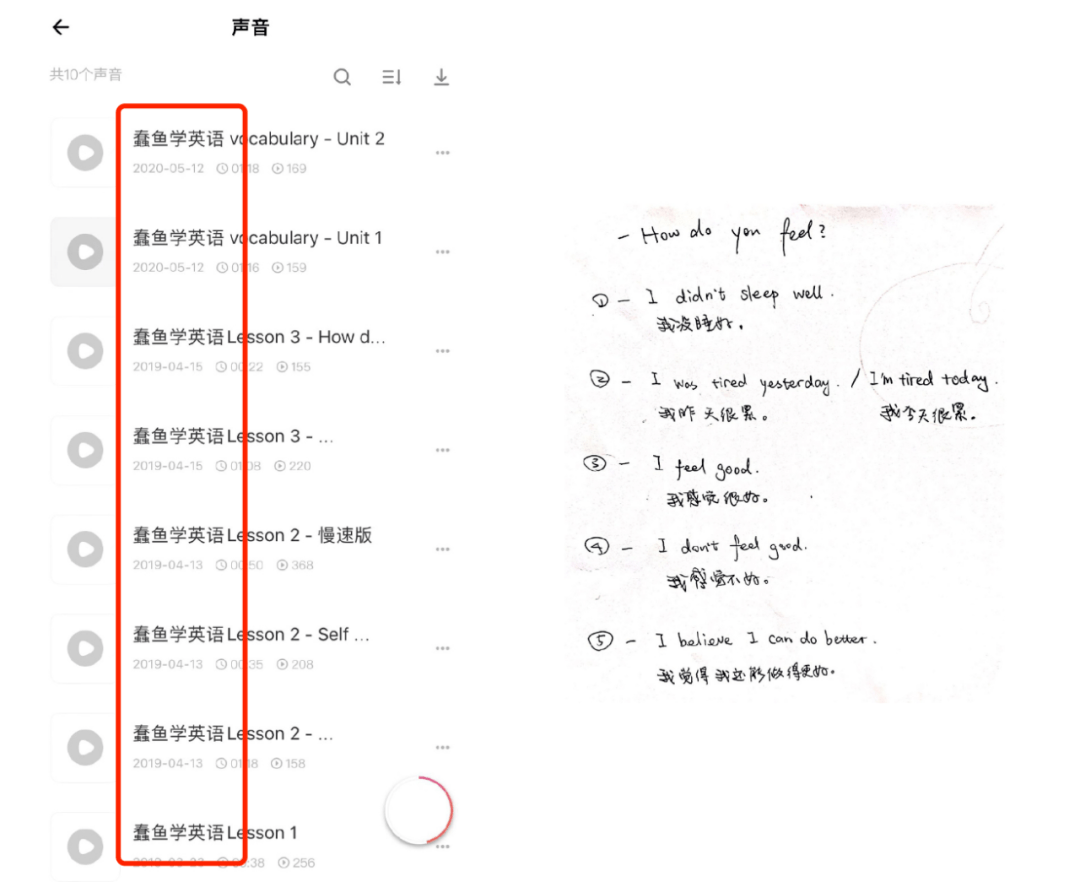 声音
共10个声音
蠢鱼学英语 vocabulary - Unit 2
2020-05-12 01:18 169
蠢鱼学英语 vocabulary - Unit 1
2020-05-12 01:16 159
蠢鱼学英语Lesson 3 - How d...
2019-04-15 00:22 155
蠢鱼学英语Lesson 3 - ...
2019-04-15 01:08 220
蠢鱼学英语Lesson 2 - 慢速版
2019-04-13 00:50 368
蠢鱼学英语Lesson 2 - Self ...
2019-04-13 00:35 208
蠢鱼学英语Lesson 2 - ...
2019-04-13 01:18 158
蠢鱼学英语Lesson 1
256
- How do you feel?
① - I didn't sleep well.
我没睡好。
② - I was tired yesterday. / I'm tired today.
我昨天很累。 我今天很累。
③ - I feel good.
我感觉很好。
④ - I don't feel good.
我感觉不好。
⑤ - I believe I can do better.
我觉得我还能做得更好。